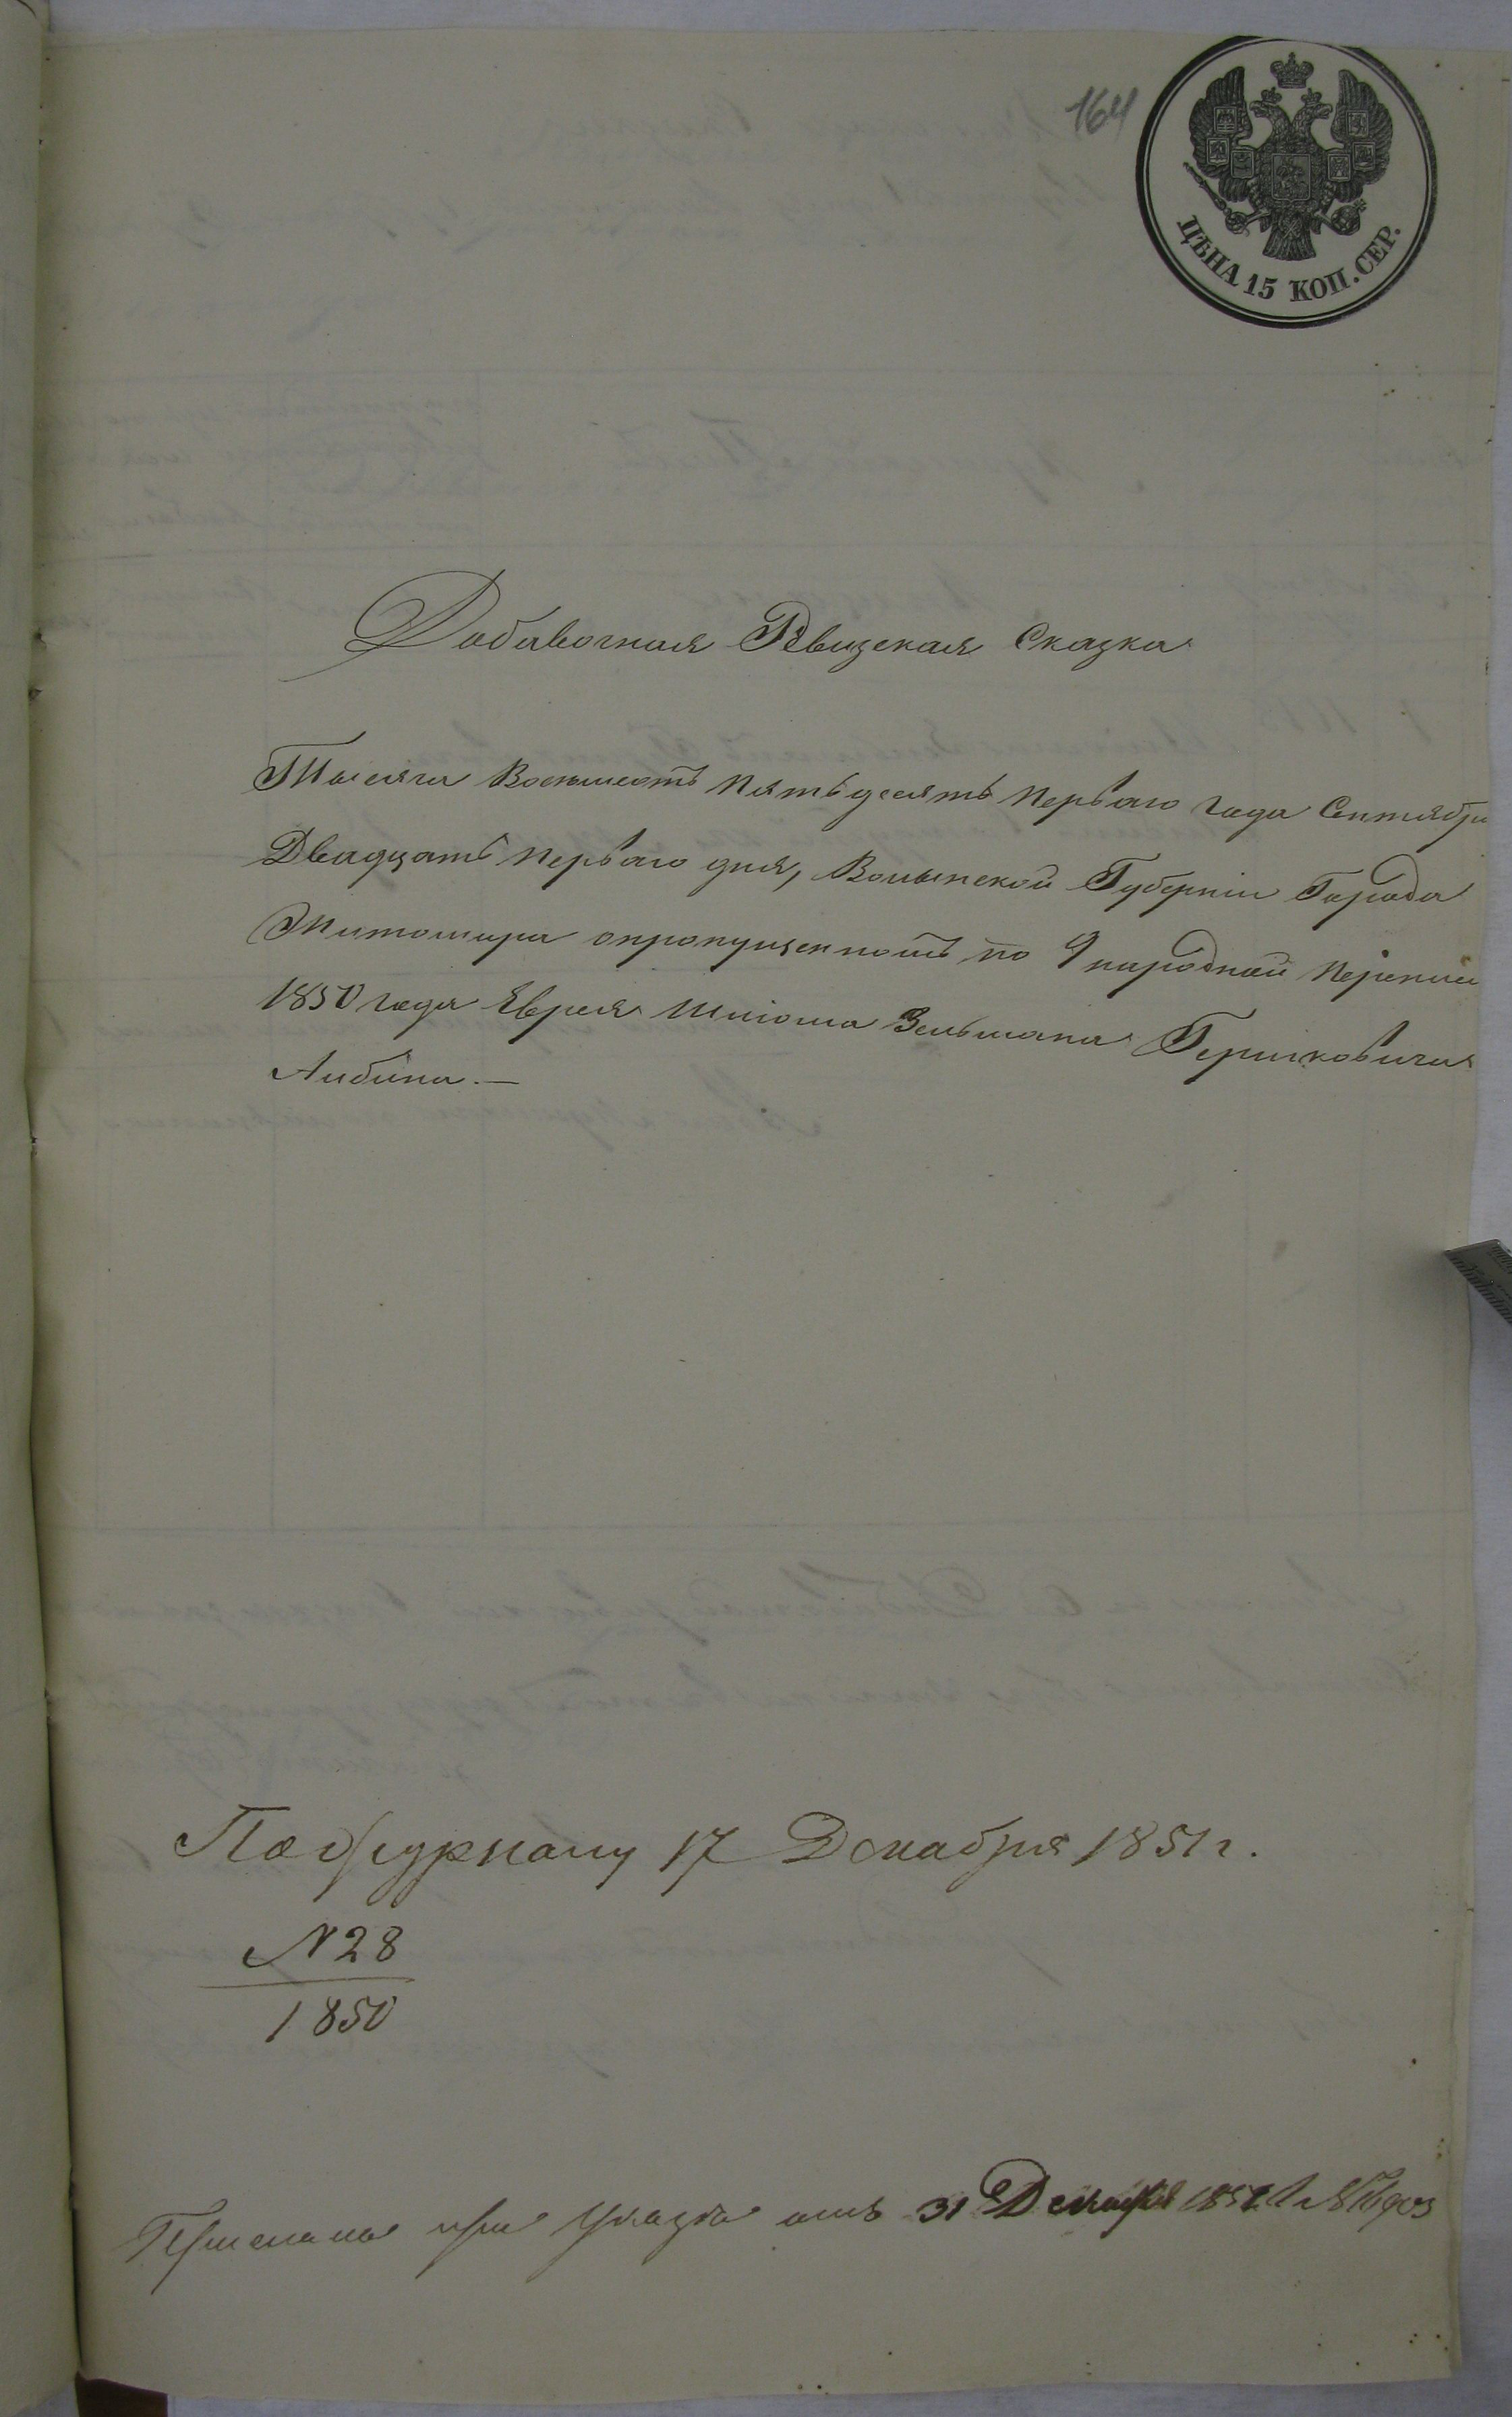 164
ЦѢНА 15 КОП. СЕР.
Добавочная Ревизская Сказка
Тысяча Восемьсотъ Пятьдесятъ Перваго года Сентября
Двадцать Перваго дня, Волынской Губерніи Города
Житомира опропущенномъ по 9 народной Переписи
1850 года Еврея Шліома Зельмана Гершковича
Либина. —
По журналу 17 Декабря 1851 г.
N 28
1850
При указа отъ 31 Декабря 1851